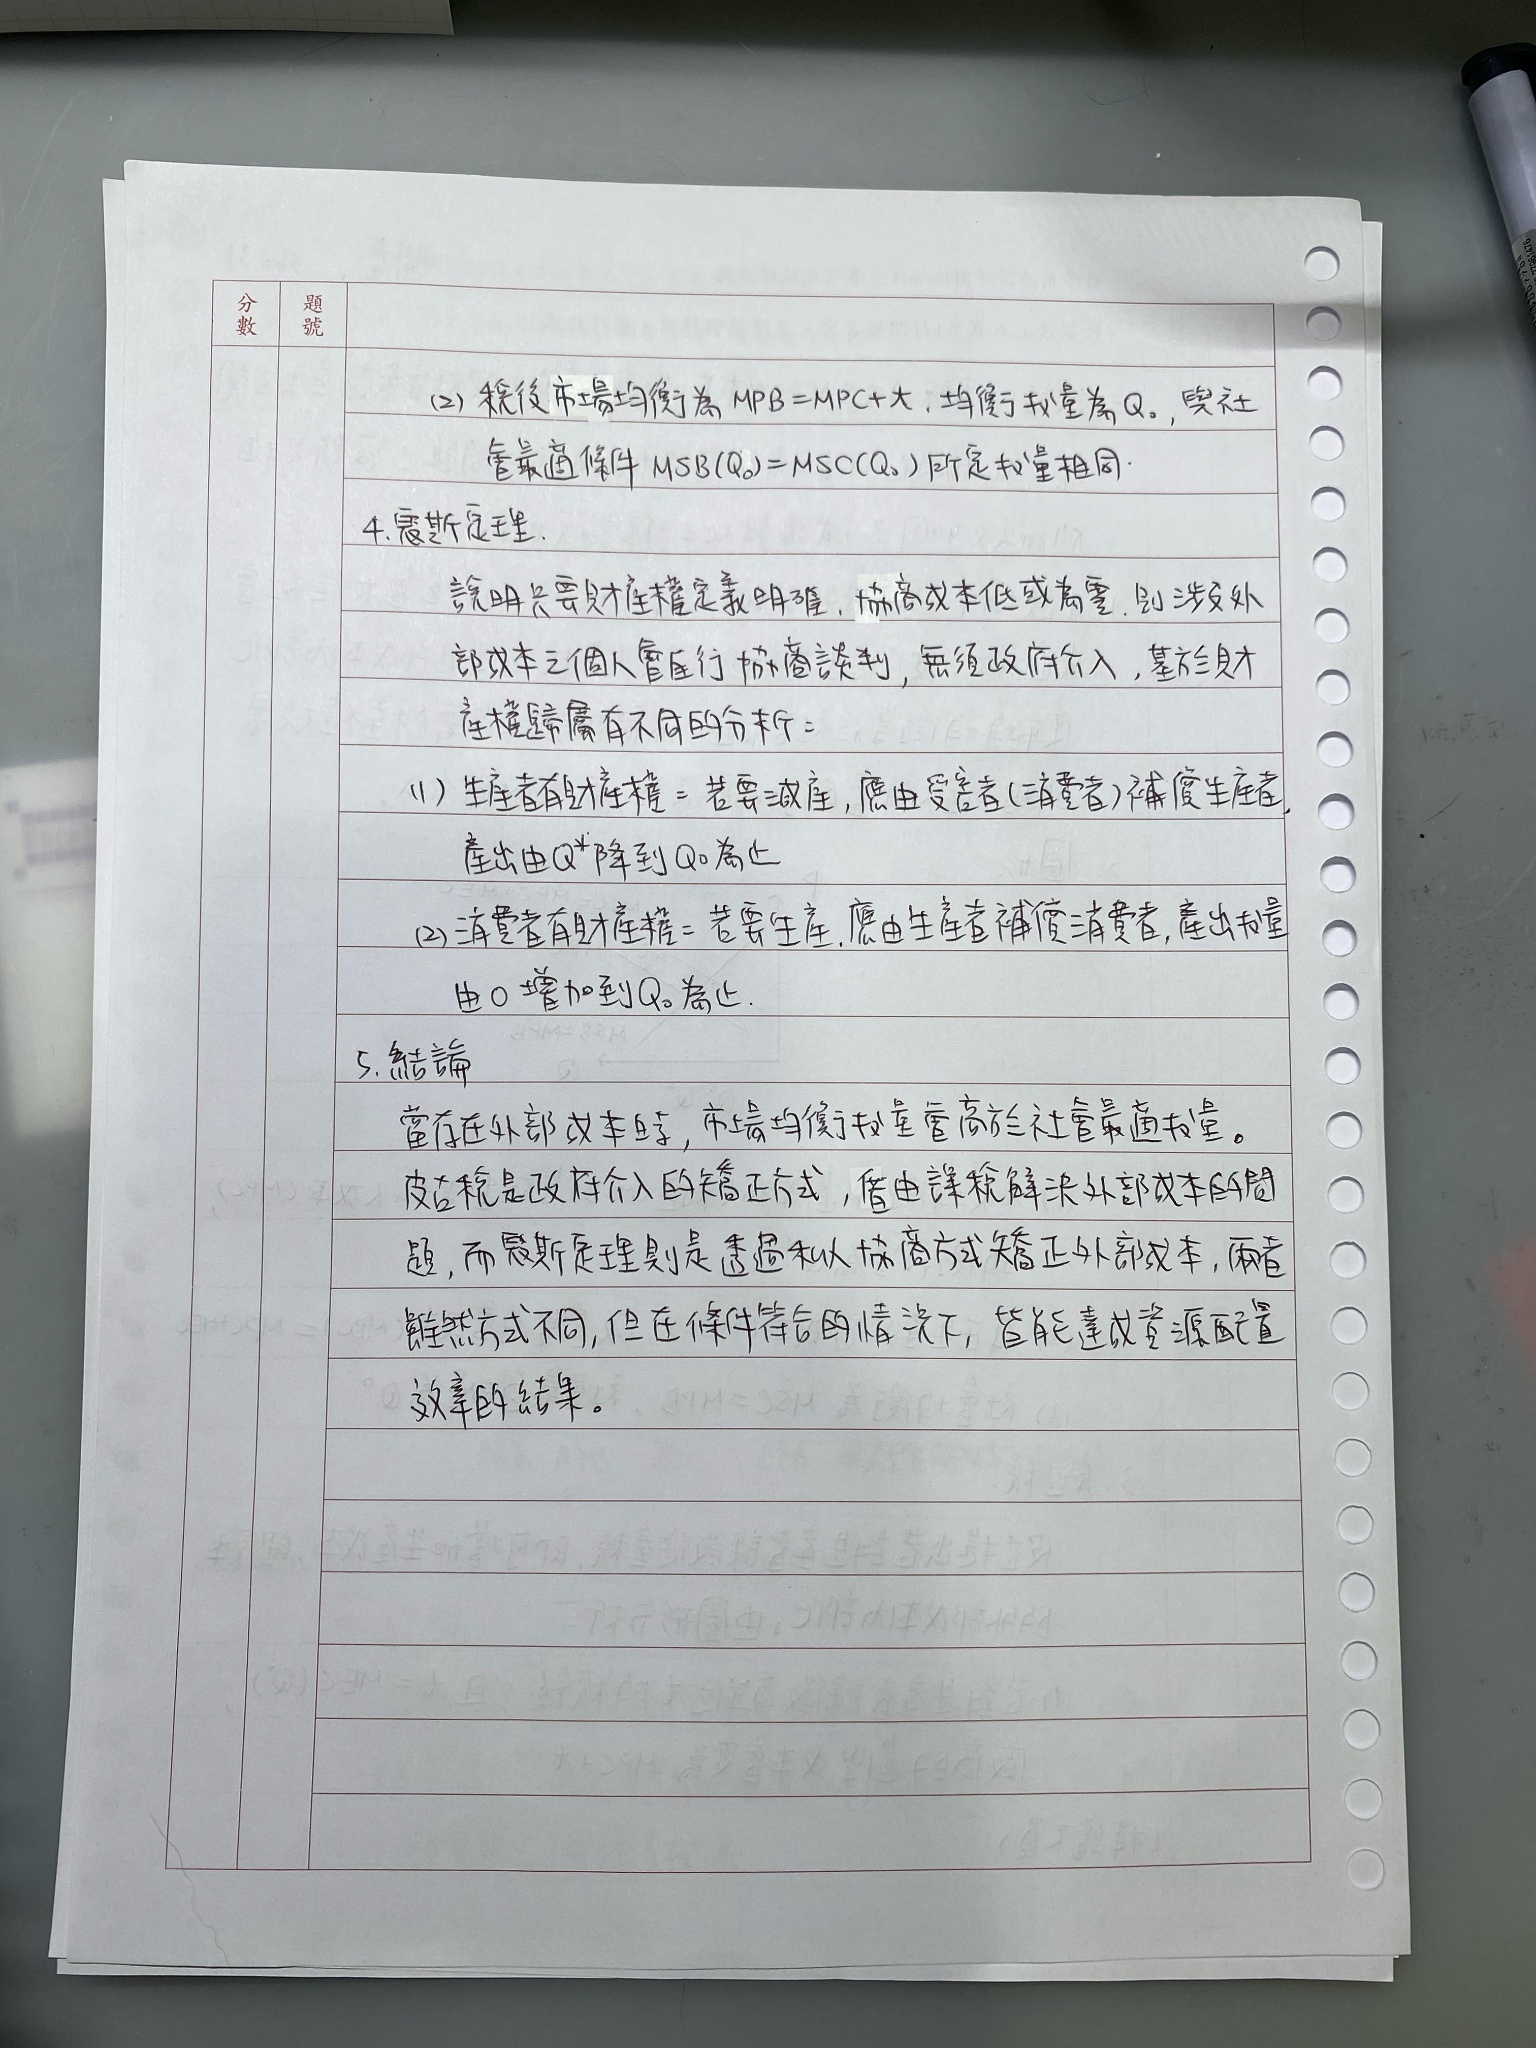 分數 題號
(2) 稅後市場均衡為 MPB=MPC+t，均衡數量為Q₀，與社
會最適條件 MSB(Q₀)=MSC(Q₀)所定數量相同.
4.寇斯定理.
說明只要財產權定義明確，協商成本低或為零，則涉及外
部成本之個人會自行協商談判，無須政府介入，基於財
產權歸屬有不同的分析=
(1) 生產者有財產權=若要減產，應由受害者(消費者)補償生產者，
產出由Q*降到Q₀為止
(2)消費者有財產權=若要生產，應由生產者補償消費者，產出數量
由0增加到Q₀為止.
5.結論
當存在外部成本時，市場均衡數量會高於社會最適數量。
皮古稅是政府介入的矯正方式，借由課稅解決外部成本的問
題，而寇斯定理則是透過私人協商方式矯正外部成本，兩者
雖然方式不同，但在條件符合的情況下，皆能達成資源配置
效率的結果。